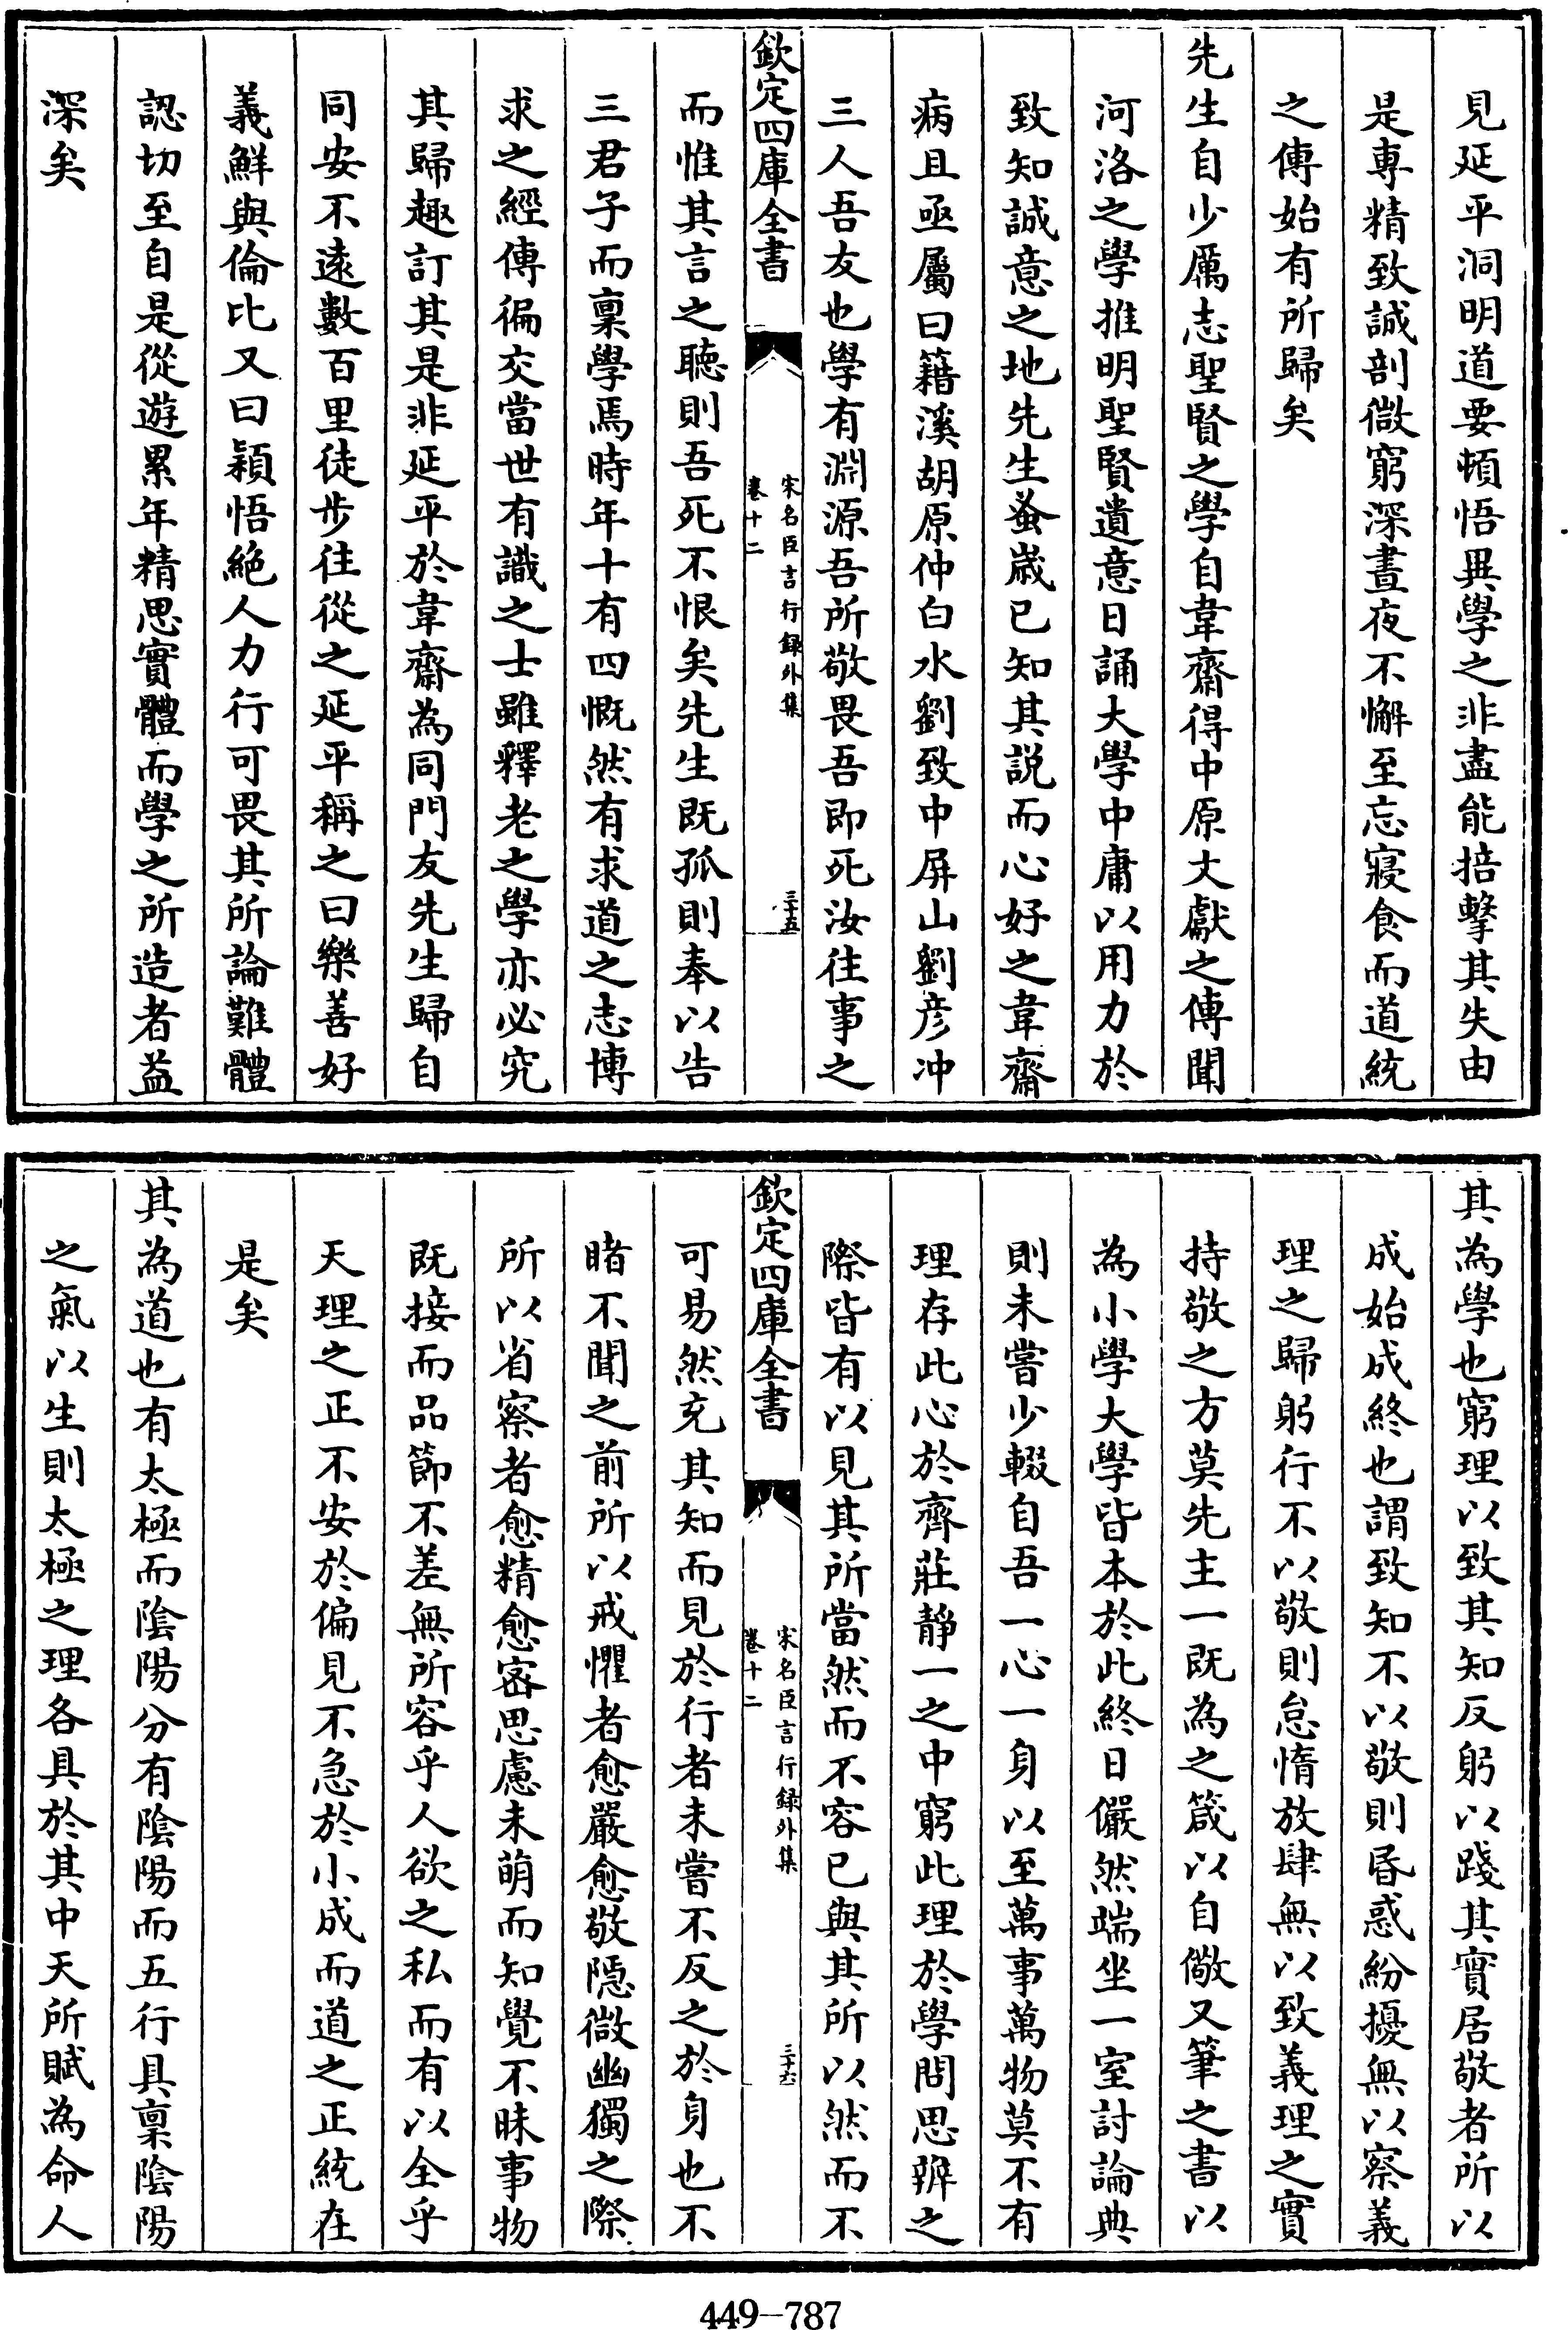 見延平洞明道要頓悟異學之非盡能掊擊其失由
是專精致誠剖微窮深晝夜不懈至忘寢食而道統
之傳始有所歸矣
先生自少厲志聖賢之學自韋齋得中原文獻之傳聞
河洛之學推明聖賢遺意日誦大學中庸以用力於
致知誠意之地先生蚤歲已知其説而心好之韋齋
病且亟屬曰籍溪胡原仲白水劉致中屏山劉彦冲
三人吾友也學有淵源吾所敬畏吾即死汝往事之
欽定四庫全書
宋名臣言行録外集
卷十二
三十五
而惟其言之聽則吾死不恨矣先生既孤則奉以告
三君子而稟學焉時年十有四慨然有求道之志博
求之經傳徧交當世有識之士雖釋老之學亦必究
其歸趣訂其是非延平於韋齋為同門友先生歸自
同安不遠數百里徒步往從之延平稱之曰樂善好
義鮮與倫比又曰穎悟絶人力行可畏其所論難體
認切至自是從遊累年精思實體而學之所造者益
深矣
其為學也窮理以致其知反躬以踐其實居敬者所以
成始成終也謂致知不以敬則昬惑紛擾無以察義
理之歸躬行不以敬則怠惰放肆無以致義理之實
持敬之方莫先主一既為之箴以自儆又筆之書以
為小學大學皆本於此終日儼然端坐一室討論典
則未嘗少輟自吾一心一身以至萬事萬物莫不有
理存此心於齊莊靜一之中窮此理於學問思辨之
際皆有以見其所當然而不容已與其所以然而不
欽定四庫全書
宋名臣言行録外集
卷十二
三十六
可易然充其知而見於行者未嘗不反之於身也不
睹不聞之前所以戒懼者愈嚴愈敬隱微幽獨之際
所以省察者愈精愈密思慮未萌而知覺不昧事物
既接而品節不差無所容乎人欲之私而有以全乎
天理之正不安於偏見不急於小成而道之正統在
是矣
其為道也有太極而陰陽分有陰陽而五行具稟陰陽
之氣以生則太極之理各具於其中天所賦為命人
449-787